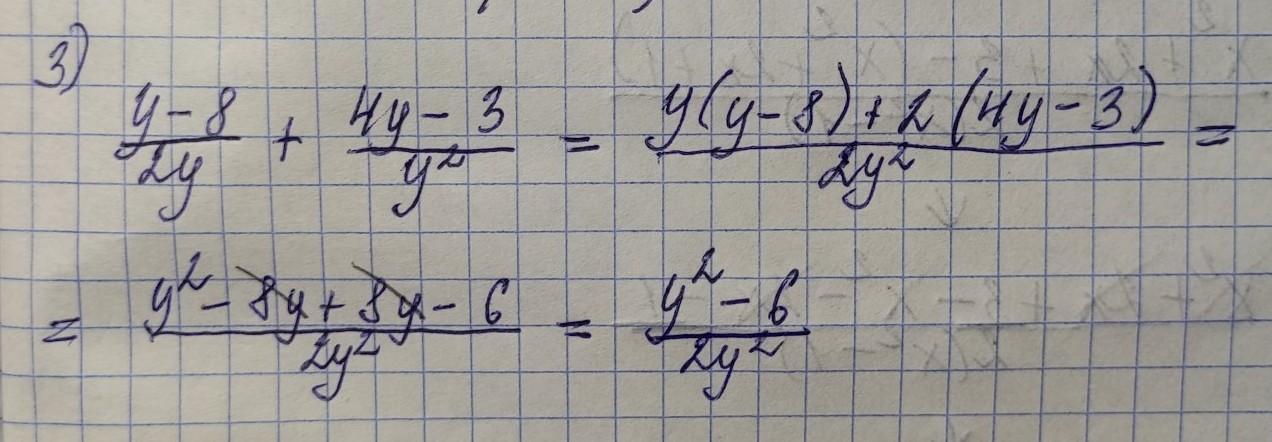 3)
(y-8)/(2y) + (4y-3)/(y²) = (y(y-8)+2(4y-3))/(2y²) =
= (y²-8y+8y-6)/(2y²) = (y²-6)/(2y²)